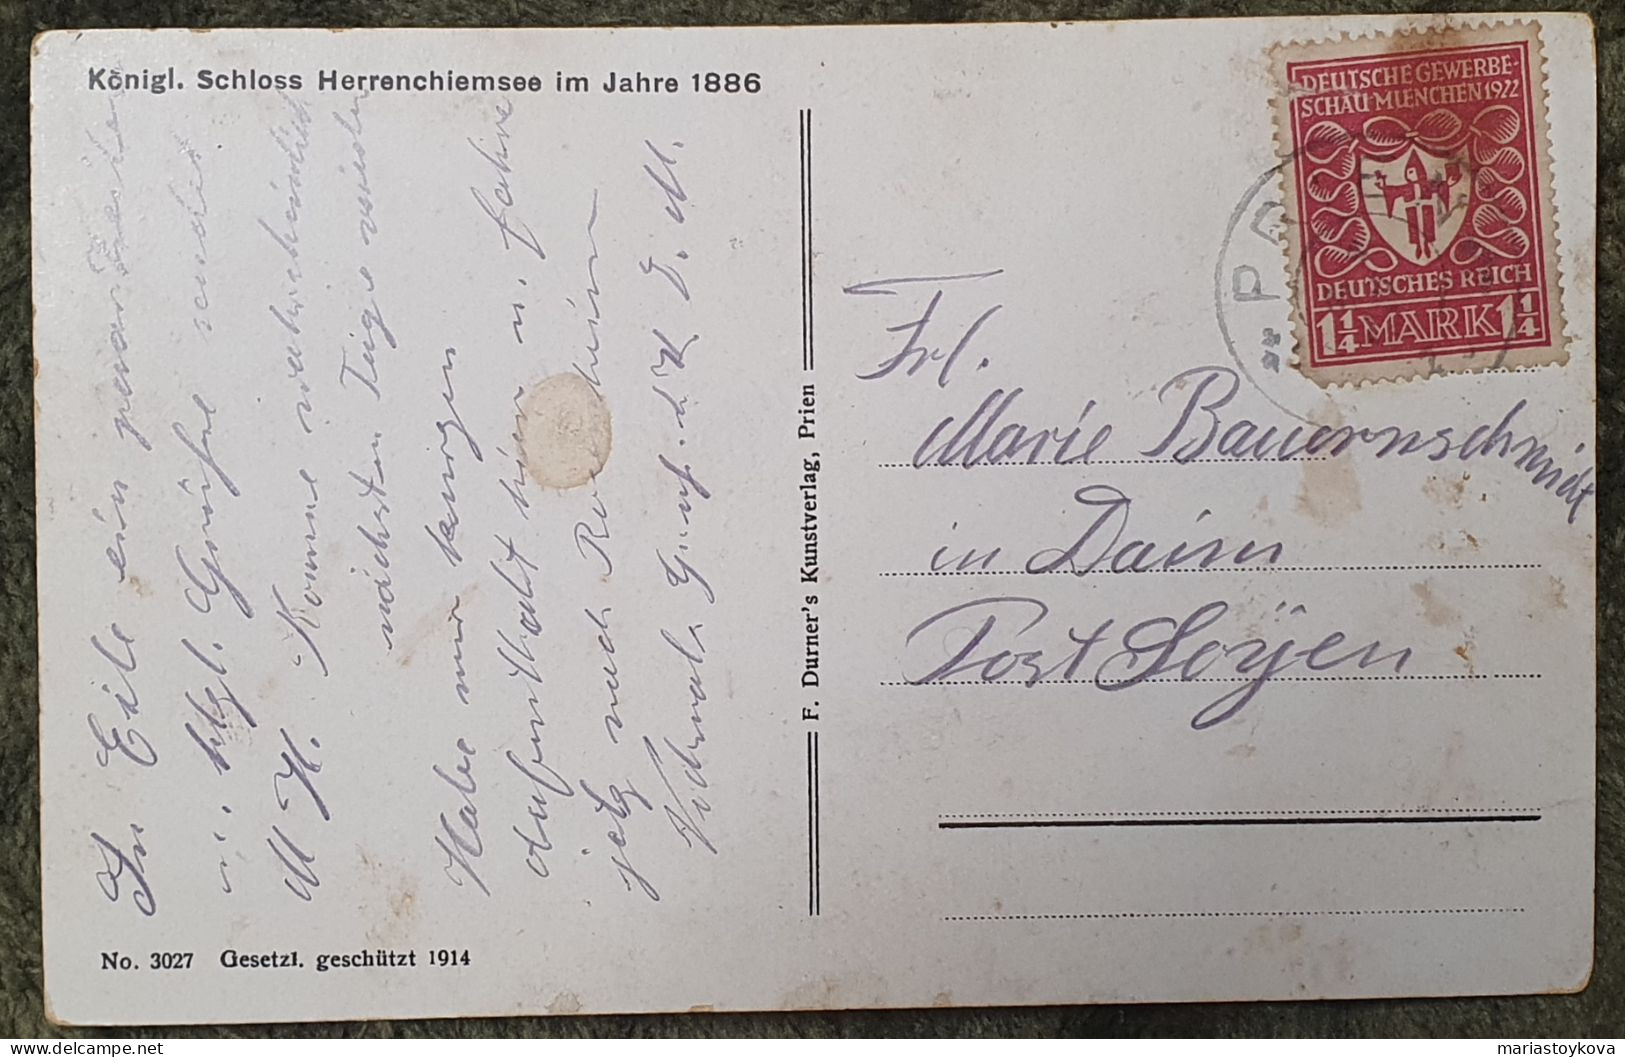 Königl. Schloss Herrenchiemsee im Jahre 1886
In Eile ein paar Zeilen
u. htzl. Grüße sendet
M. H. Komme wahrscheinlich
nächsten Tage wieder
Habe nur kurzen
Aufenthalt hier u. fahre
jetz nach Rosenheim
Nochmals Gruß. d. K. D. M.
No. 3027 Gesetzl. geschützt 1914
F. Durner's Kunstverlag, Prien
DEUTSCHE GEWERBE-
SCHAU·MUENCHEN 1922
DEUTSCHES REICH
1¼ MARK 1¼
PR
Frl.
Marie Bauernschmidt
in Daim
Post Soyen
mariastoykova